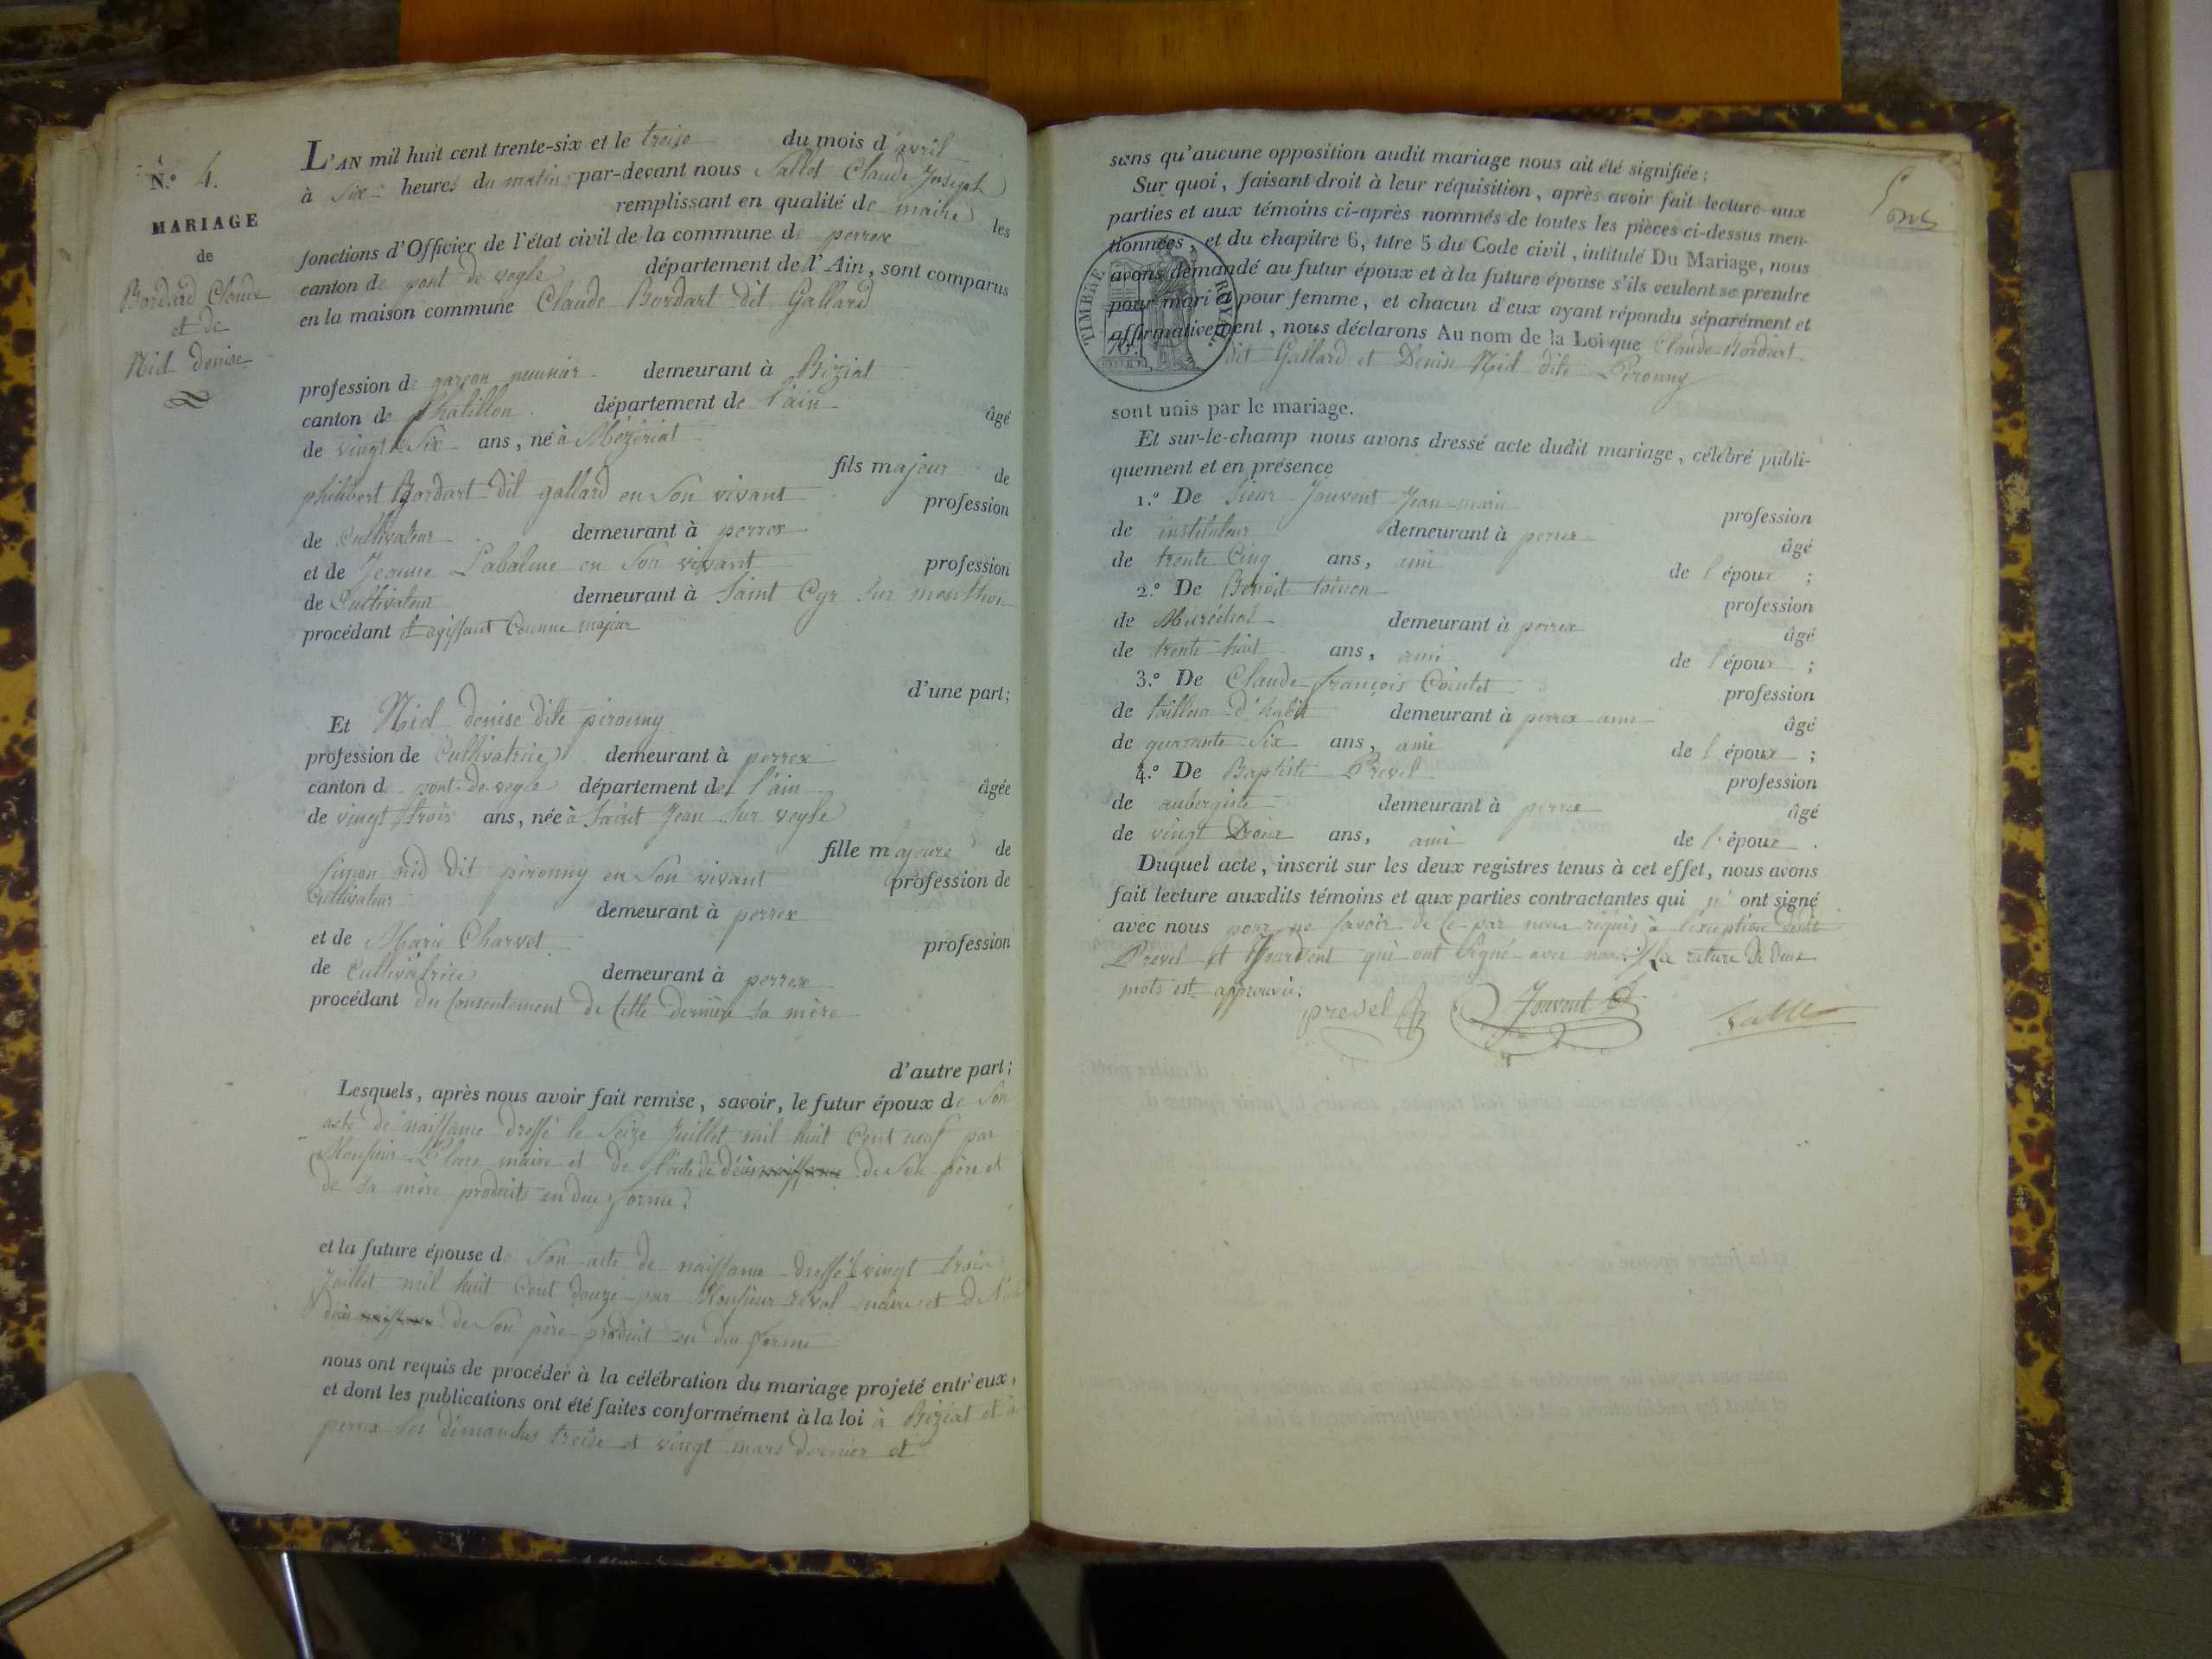 N.° 4.
MARIAGE
de
Bordard Claude
et de
Nid denise
L'AN mil huit cent trente-six et le treize du mois d'avril
à Six heures du matin par-devant nous Sallet Claude Joseph
remplissant en qualité de maire les
fonctions d'Officier de l'état civil de la commune de perrex
canton de pont de veyle département de l'Ain, sont comparus
en la maison commune Claude Bordart dit Gallard
profession de garçon meunier demeurant à Biziat
canton de Chatillon département de l'ain âgé
de vingt Six ans, né à Mézériat
fils majeur de
philibert Bordart dit gallard en Son vivant profession
de Cultivateur demeurant à perrex
et de Jeanne Labalme en Son vivant profession
de Cultivateur demeurant à Saint Cyr Sur menthon
procédant et agissant Comme majeur
d'une part;
Et Nid denise dite pirouny
profession de Cultivatrice demeurant à perrex
canton de pont-de-veyle département de l'ain âgée
de vingt trois ans, née à Saint Jean Sur veyle
fille majeure de
Simon nid dit pirouny en Son vivant profession de
Cultivateur demeurant à perrex
et de Marie Charvet profession
de Cultivatrice demeurant à perrex
procédant du Consentement de Cette dernière sa mère
d'autre part;
Lesquels, après nous avoir fait remise, savoir, le futur époux de Son
acte de naissance dressé le Seize Juillet mil huit Cent neuf par
Monsieur maire et de l'acte de décès naissance de Son père et
de sa mère produits en due forme
et la future épouse de Son acte de naissance dressé le vingt trois
Juillet mil huit Cent douze par Monsieur maire et de
décès naissance de Son père produit en due forme
nous ont requis de procéder à la célébration du mariage projeté entr'eux,
et dont les publications ont été faites conformément à la loi à Biziat et à
perrex les dimanches treize et vingt mars dernier et
sans qu'aucune opposition audit mariage nous ait été signifiée;
Sur quoi, faisant droit à leur réquisition, après avoir fait lecture aux
parties et aux témoins ci-après nommés de toutes les pièces ci-dessus men-
tionnées, et du chapitre 6, titre 5 du Code civil, intitulé Du Mariage, nous
avons demandé au futur époux et à la future épouse s'ils veulent se prendre
pour mari et pour femme, et chacun d'eux ayant répondu séparément et
affirmativement, nous déclarons Au nom de la Loi que Claude Bordart
dit Gallard et Denise Nid dite Pirouny
TIMBRE ROYAL
sont unis par le mariage.
Et sur-le-champ nous avons dressé acte dudit mariage, célébré publi-
quement et en présence
1.° De Sieur Jouvent Jean-marie profession
de instituteur demeurant à perrex âgé
de trente Cinq ans, ami de l'époux ;
2.° De Benoit profession
de Maréchal demeurant à perrex âgé
de trente huit ans, ami de l'époux ;
3.° De Claude françois Cointet profession
de tailleur d'habit demeurant à perrex ami âgé
de quarante Six ans, ami de l'époux ;
4.° De Baptiste Prevel profession
de aubergiste demeurant à perrex âgé
de vingt Deux ans, ami de l'époux .
Duquel acte, inscrit sur les deux registres tenus à cet effet, nous avons
fait lecture auxdits témoins et aux parties contractantes qui n' ont signé
avec nous pour ne Savoir de Ce par nous requis à l'exception desdits
Prevel et Jouvent qui ont Signé avec nous. La rature de deux
mots est approuvée.
prevel Jouvent Sallet